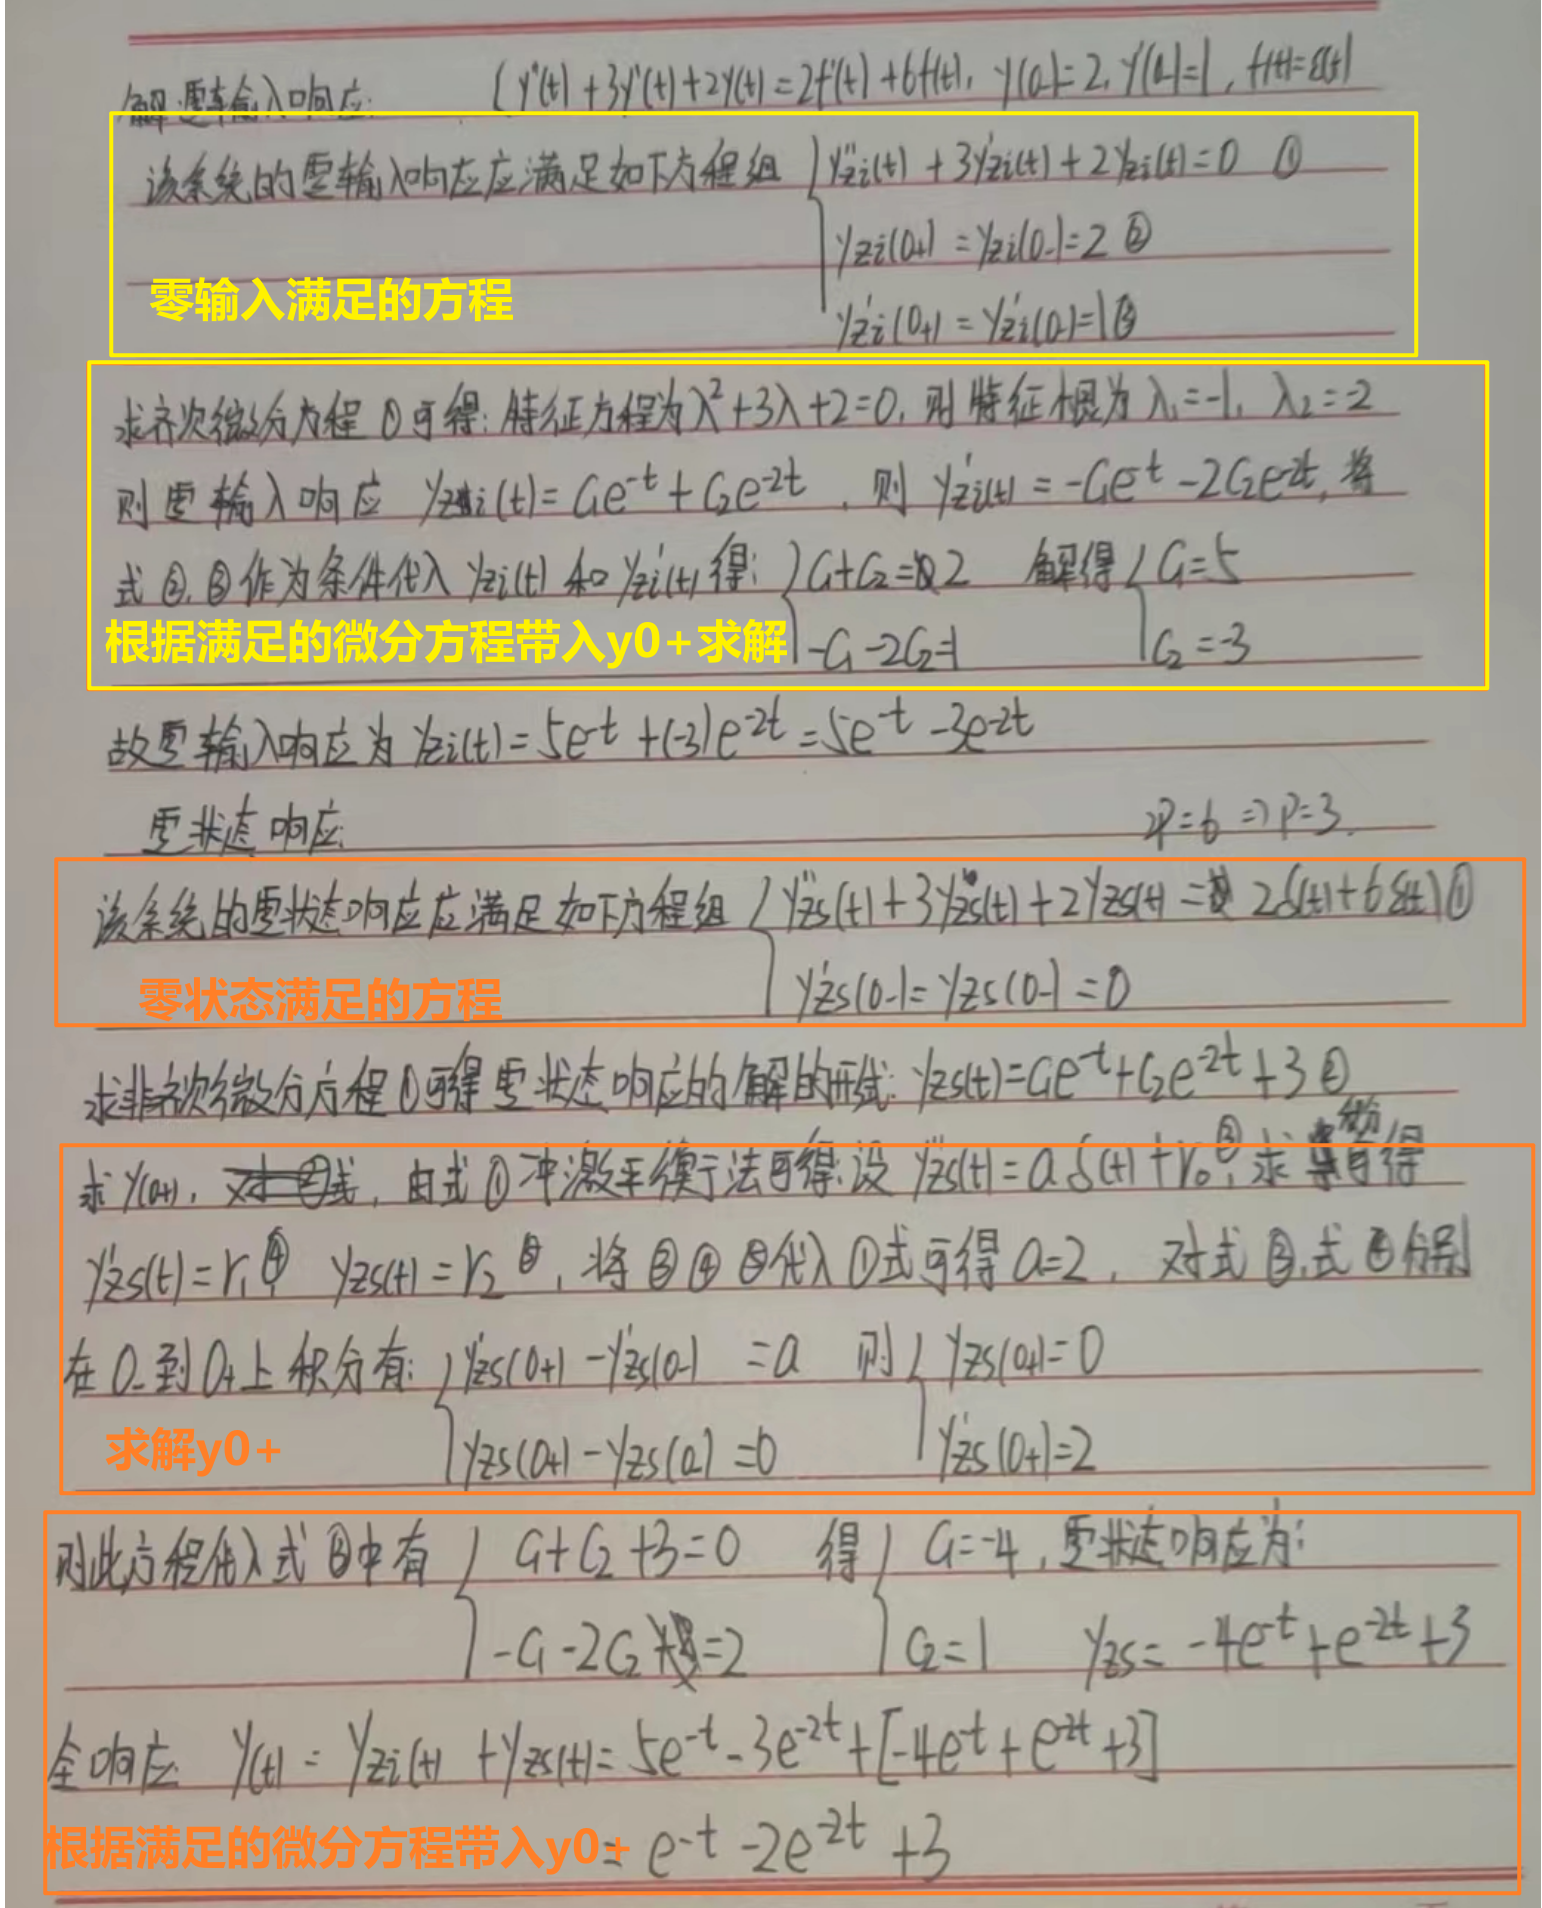 解:零输入响应: { y''(t) + 3y'(t) + 2y(t) = 2f'(t) + 6f(t), y(0-)=2, y'(0-)=1, f(t)=ε(t)
该系统的零输入响应应满足如下方程组 { y''zi(t) + 3y'zi(t) + 2yzi(t) = 0 ①
yzi(0+) = yzi(0-) = 2 ②
零输入满足的方程
y'zi(0+) = y'zi(0-) = 1 ③
求齐次微分方程①可得: 特征方程为λ²+3λ+2=0, 则特征根为λ₁=-1, λ₂=-2
则零输入响应 yzi(t) = C₁e^-t + C₂e^-2t, 则 y'zi(t) = -C₁e^-t - 2C₂e^-2t, 将
式②,③作为条件代入 yzi(t) 和 y'zi(t) 得: { C₁+C₂=2 解得 { C₁=5
根据满足的微分方程带入y0+求解
-C₁-2C₂=1 C₂=-3
故零输入响应为 yzi(t) = 5e^-t + (-3)e^-2t = 5e^-t - 3e^-2t
零状态响应: 2P=6 => P=3.
该系统的零状态响应应满足如下方程组 { y''zs(t) + 3y'zs(t) + 2yzs(t) = 2δ(t) + 6ε(t) ①
零状态满足的方程
y'zs(0-) = yzs(0-) = 0
求非齐次微分方程①可得零状态响应的解的形式: yzs(t) = C₁e^-t + C₂e^-2t + 3 ②
求y(0+), 由式①冲激平衡法可得:设 y''zs(t) = aδ(t) + r₀ ③, 求积分可得
y'zs(t) = r₁ ④, yzs(t) = r₂ ⑤, 将③④⑤代入①式可得 a=2, 对式③,式④分别
在0-到0+上积分有: { y'zs(0+) - y'zs(0-) = a 则 { yzs(0+) = 0
求解y0+
yzs(0+) - yzs(0-) = 0 y'zs(0+) = 2
则此方程代入式②中有 { C₁+C₂+3=0 得 { C₁=-4, 零状态响应为:
-C₁-2C₂=2 C₂=1 yzs = -4e^-t + e^-2t + 3
全响应 y(t) = yzi(t) + yzs(t) = 5e^-t - 3e^-2t + [-4e^-t + e^-2t + 3]
根据满足的微分方程带入y0+
= e^-t - 2e^-2t + 3